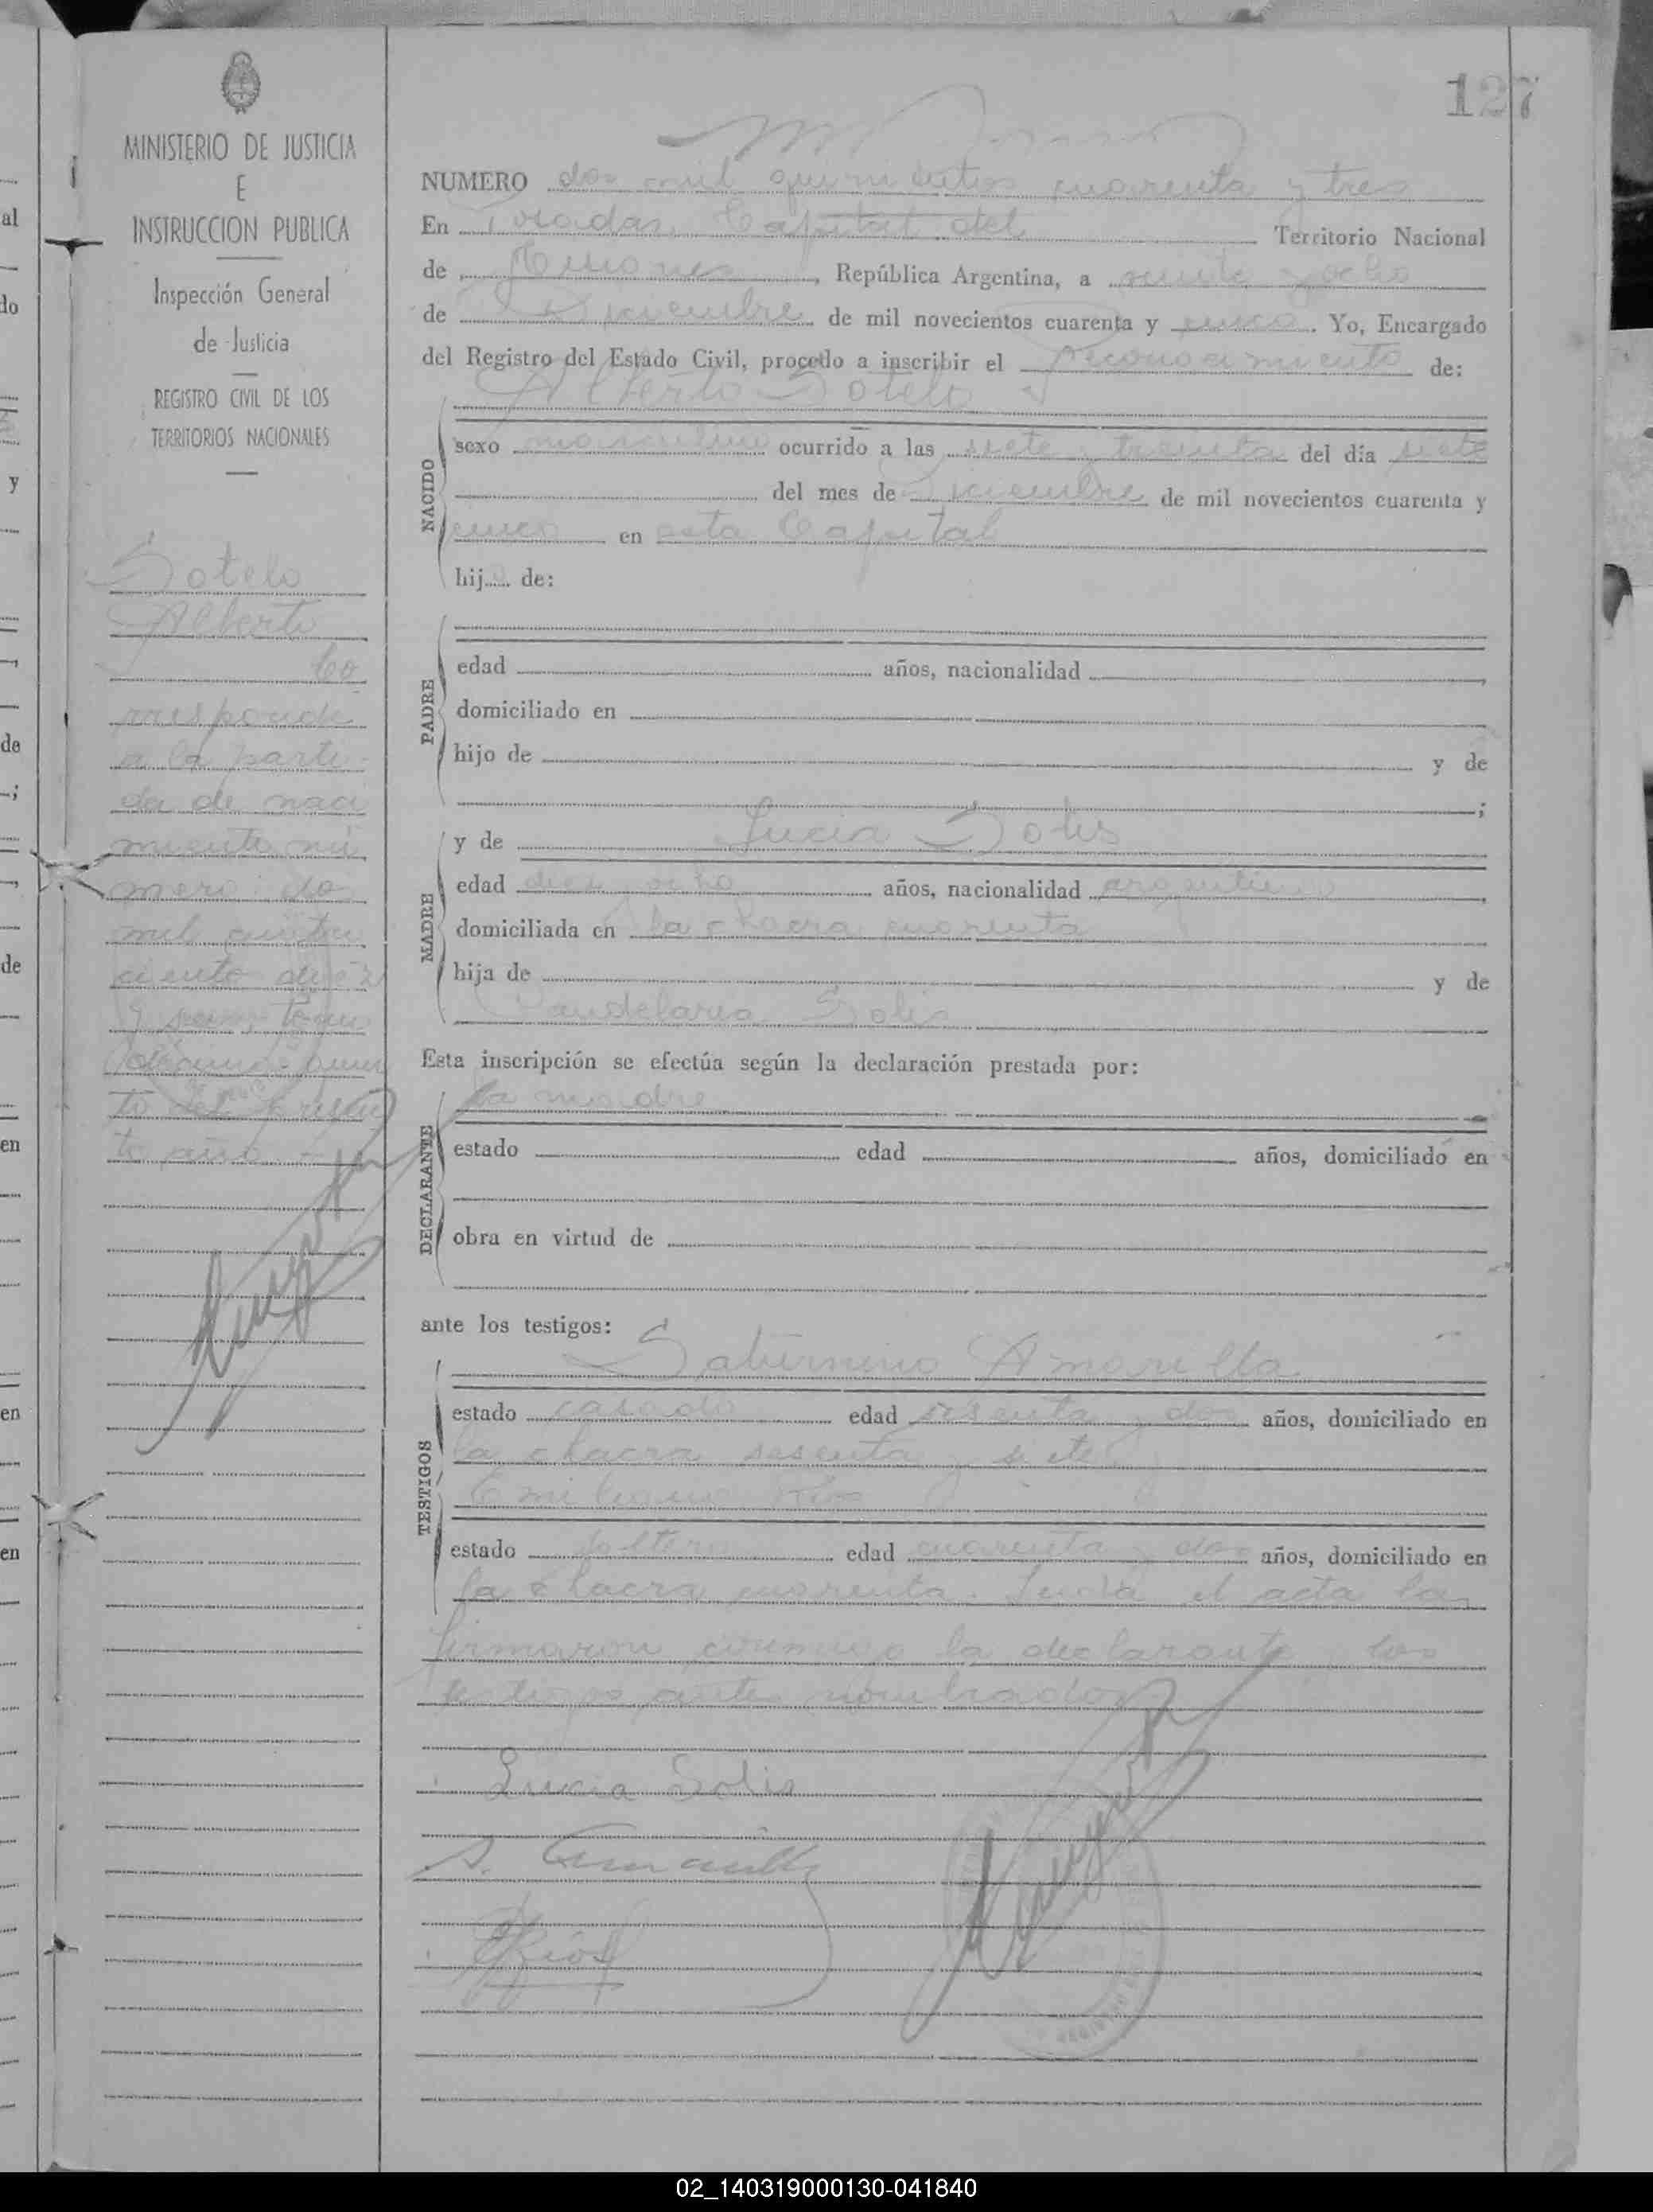 127
MINISTERIO DE JUSTICIA
E
INSTRUCCION PUBLICA
Inspección General
de Justicia
REGISTRO CIVIL DE LOS
TERRITORIOS NACIONALES
Sotelo
Alberto
Co
rresponde
a la parti-
da de naci
miento nú
mero dos
mil cuatro
ciento diez
y
to año
NUMERO dos mil quinientos cuarenta y tres
En Posadas, Capital del Territorio Nacional
de Misiones, República Argentina, a veinte y ocho
de Diciembre de mil novecientos cuarenta y cinco. Yo, Encargado
del Registro del Estado Civil, procedo a inscribir el reconocimiento de:
Alberto Sotelo
NACIDO
sexo masculino ocurrido a las siete y treinta del día siete
del mes de Diciembre de mil novecientos cuarenta y
cinco en esta Capital
hijo de:
PADRE
edad años, nacionalidad
domiciliado en
hijo de y de
;
MADRE
y de Lucia Solis
edad diez y ocho años, nacionalidad argentina
domiciliada en la chacra cuarenta
hija de y de
Candelaria Solis
Esta inscripción se efectúa según la declaración prestada por:
DECLARANTE
la madre
estado edad años, domiciliado en
obra en virtud de
ante los testigos:
TESTIGOS
Saturnino Amarilla
estado casado edad sesenta y dos años, domiciliado en
la chacra sesenta y siete
Emiliano Rios
estado soltero edad cuarenta y dos años, domiciliado en
la chacra cuarenta. Leida el acta la
firmaron conmigo la declarante y los
testigos ante nombrados
Lucia Solis
S. Amarilla
E Rios
02_140319000130-041840